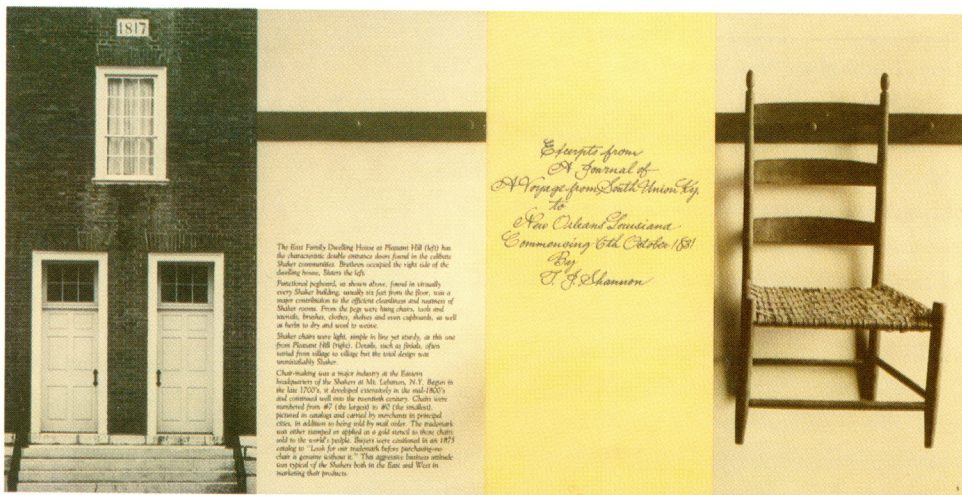 1817
The East Family Dwelling House at Pleasant Hill (left) has
the characteristic double entrance doors found in the celibate
Shaker communities. Brethren occupied the right side of the
dwelling house, Sisters the left.
Functional pegboard, as shown above, found in virtually
every Shaker building, usually six feet from the floor, was a
major contribution to the efficient cleanliness and neatness of
Shaker rooms. From the pegs were hung chairs, tools and
utensils, brushes, clothes, shelves and even cupboards, as well
as herbs to dry and wool to weave.
Shaker chairs were light, simple in line yet sturdy, as this one
from Pleasant Hill (right). Details, such as finials, often
varied from village to village but the total design was
unmistakably Shaker.
Chair-making was a major industry at the Eastern
headquarters of the Shakers at Mt. Lebanon, N.Y. Begun in
the late 1700's, it developed extensively in the mid-1800's
and continued well into the twentieth century. Chairs were
numbered from #7 (the largest) to #0 (the smallest),
pictured in catalogs and carried by merchants in principal
cities, in addition to being sold by mail order. The trademark
was either stamped or applied as a gold stencil to those chairs
sold to the world's people. Buyers were cautioned in an 1875
catalog to "Look for our trademark before purchasing—no
chair is genuine without it." This aggressive business attitude
was typical of the Shakers both in the East and West in
marketing their products.
Excerpts from
A Journal of
A Voyage from South Union Ky.
to
New Orleans Louisiana
Commencing 6th October 1831
By
T. J. Shannon